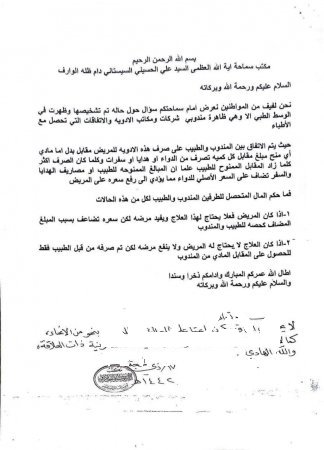 بسم الله الرحمن الرحيم
مكتب سماحة اية الله العظمى السيد علي الحسيني السيستاني دام ظله الوارف
السلام عليكم ورحمة الله وبركاته
نحن لفيف من المواطنين نعرض امام سماحتكم سؤال حول حاله تم تشخيصها وظهرت في
الوسط الطبي الا وهي ظاهرة مندوبي شركات ومكاتب الادويه والاتفاقات التي تحصل مع
الأطباء
حيث يتم الاتفاق بين المندوب والطبيب على صرف هذه الادويه للمريض مقابل بدل اما مادي
أي منح مبلغ مقابل كل كميه تصرف من الدواء او هدايا او سفرات وكلما كان الصرف اكثر
كلما زاد المقابل الممنوح للطبيب علما ان المبالغ الممنوحه للطبيب او مصاريف الهدايا
والسفر تضاف على السعر الأصلي للدواء مما يؤدي الى رفع سعره على المريض
فما حكم المال المتحصل للطرفين المندوب والطبيب لكل من هذه الحالات
١-اذا كان المريض فعلا يحتاج لهذا العلاج ويفيد مرضه لكن سعره تضاعف بسبب المبلغ
المضاف كحصه للطبيب والمندوب
٢-اذا كان العلاج لا يحتاج له المريض ولا ينفع مرضه لكن تم صرفه من قبل الطبيب فقط
للحصول على المقابل المادي من المندوب
اطال الله عمركم المبارك وادامكم ذخرا وسندا
والسلام عليكم ورحمة الله وبركاته
ذات العلاقة
والله الهادي
١٤٤٢